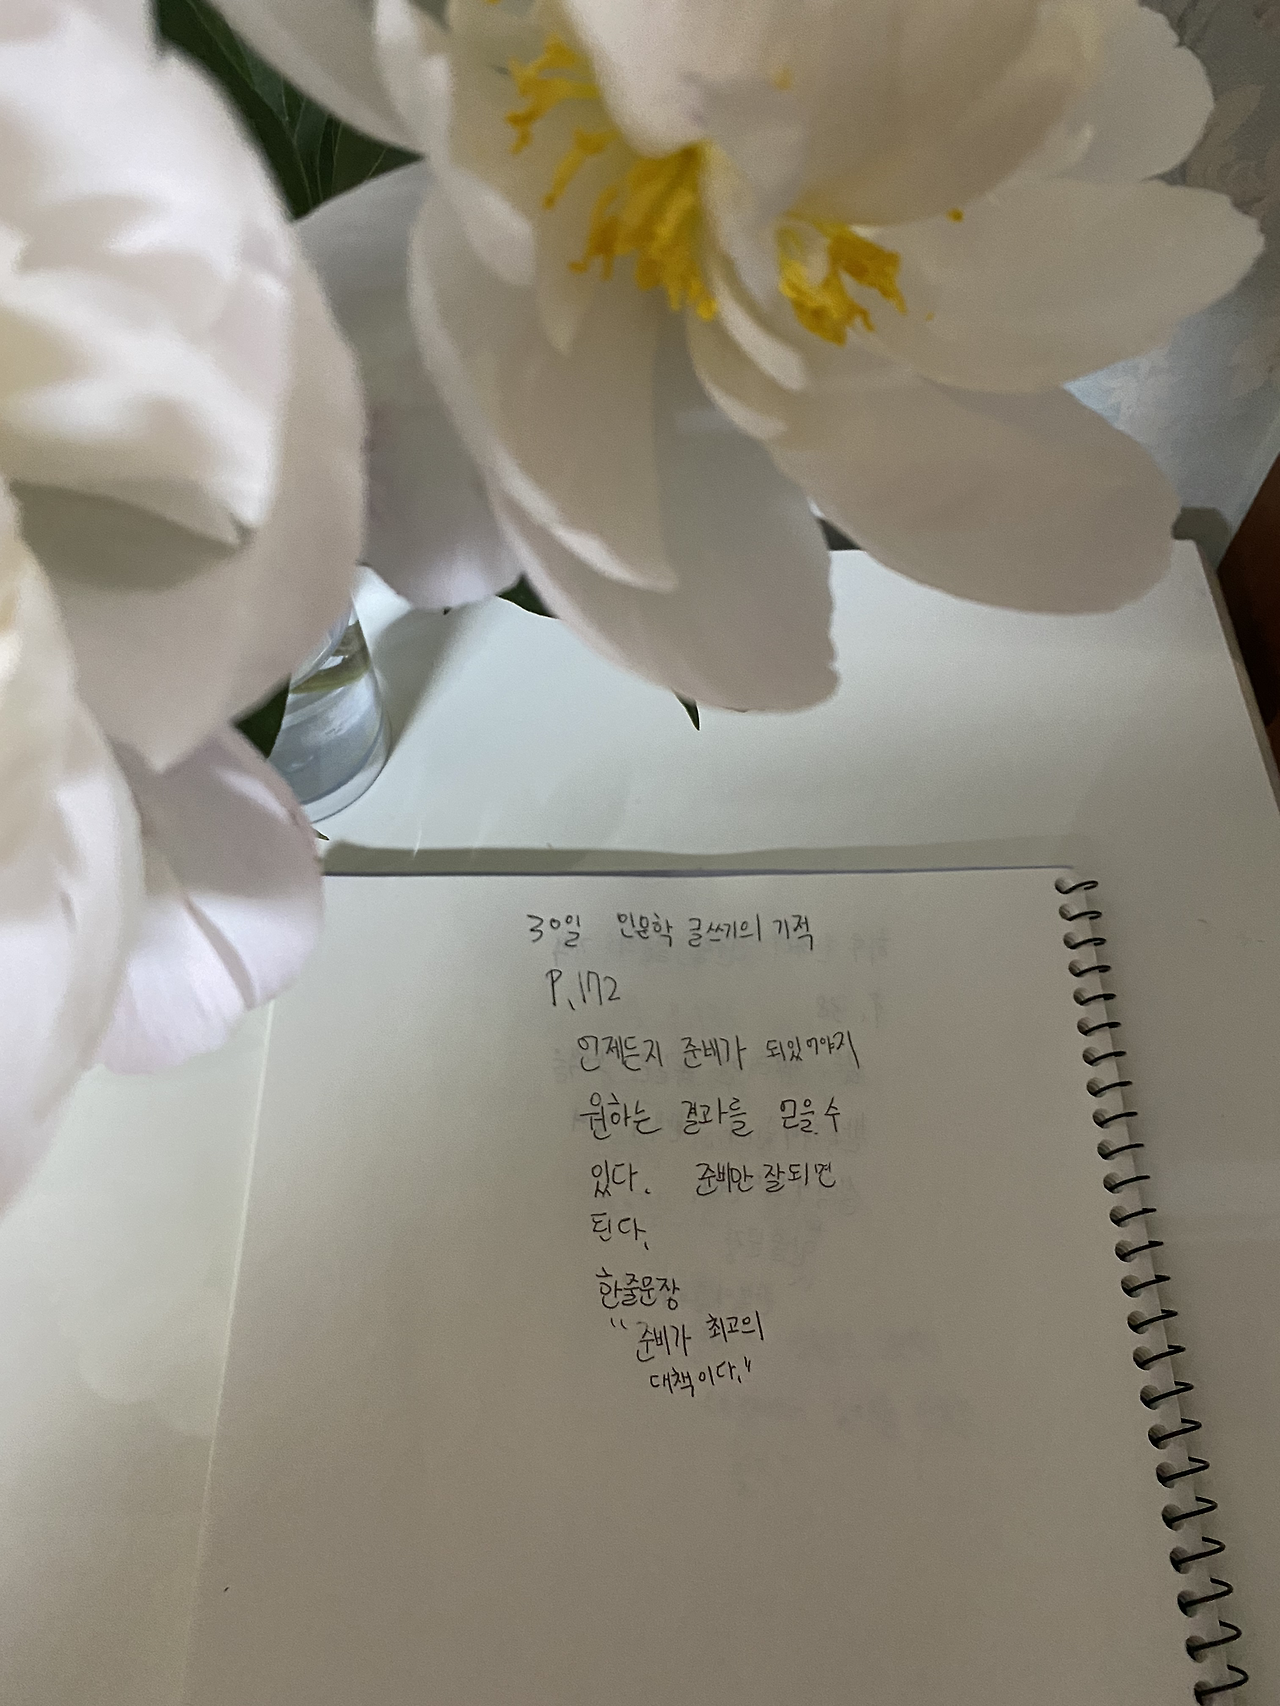 30일 인문학 글쓰기의 기적
P.172
언제든지 준비가 되있어야지
원하는 결과를 얻을 수
있다. 준비만 잘되면
된다.
한줄문장
"준비가 최고의
대책이다."